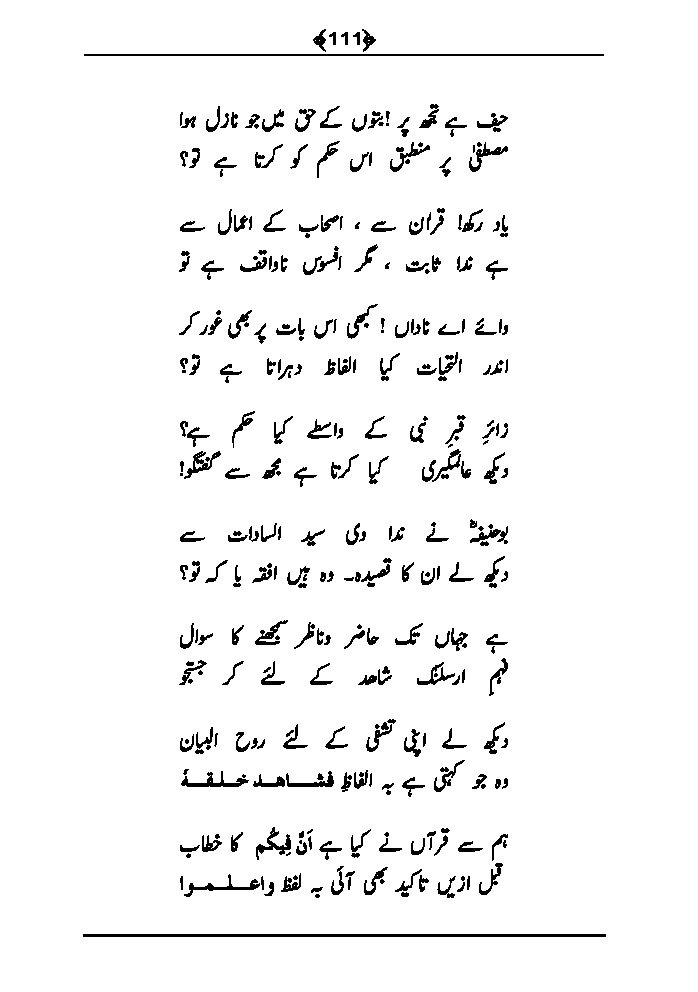 ﴿111﴾
حیف ہے تجھ پر ! بتوں کے حق میں جو نازل ہوا
مصطفیٰ پر منطبق اس حکم کو کرتا ہے تو؟
یاد رکھ! قرآن سے ، اصحاب کے اعمال سے
ہے ندا ثابت ، مگر افسوس ناواقف ہے تو
وائے اے ناداں ! کبھی اس بات پر بھی غور کر
اندر التحیات کیا الفاظ دہراتا ہے تو؟
زائرِ قبرِ نبی کے واسطے کیا حکم ہے؟
دیکھ عالمگیری کیا کرتا ہے مجھ سے گفتگو!
بوحنیفہؒ نے ندا دی سید السادات سے
دیکھ لے ان کا قصیدہ۔ وہ ہیں افقہ یا کہ تو؟
ہے جہاں تک حاضر وناظر سمجھنے کا سوال
فہمِ ارسلنٰک شاھد کے لئے کر جستجو
دیکھ لے اپنی تشفی کے لئے روح البیان
وہ جو کہتی ہے بہ الفاظِ فشاھد خلقہٗ
ہم سے قرآں نے کیا ہے اَنَّ فِیکُم کا خطاب
قبل ازیں تاکید بھی آئی بہ لفظ واعلموا